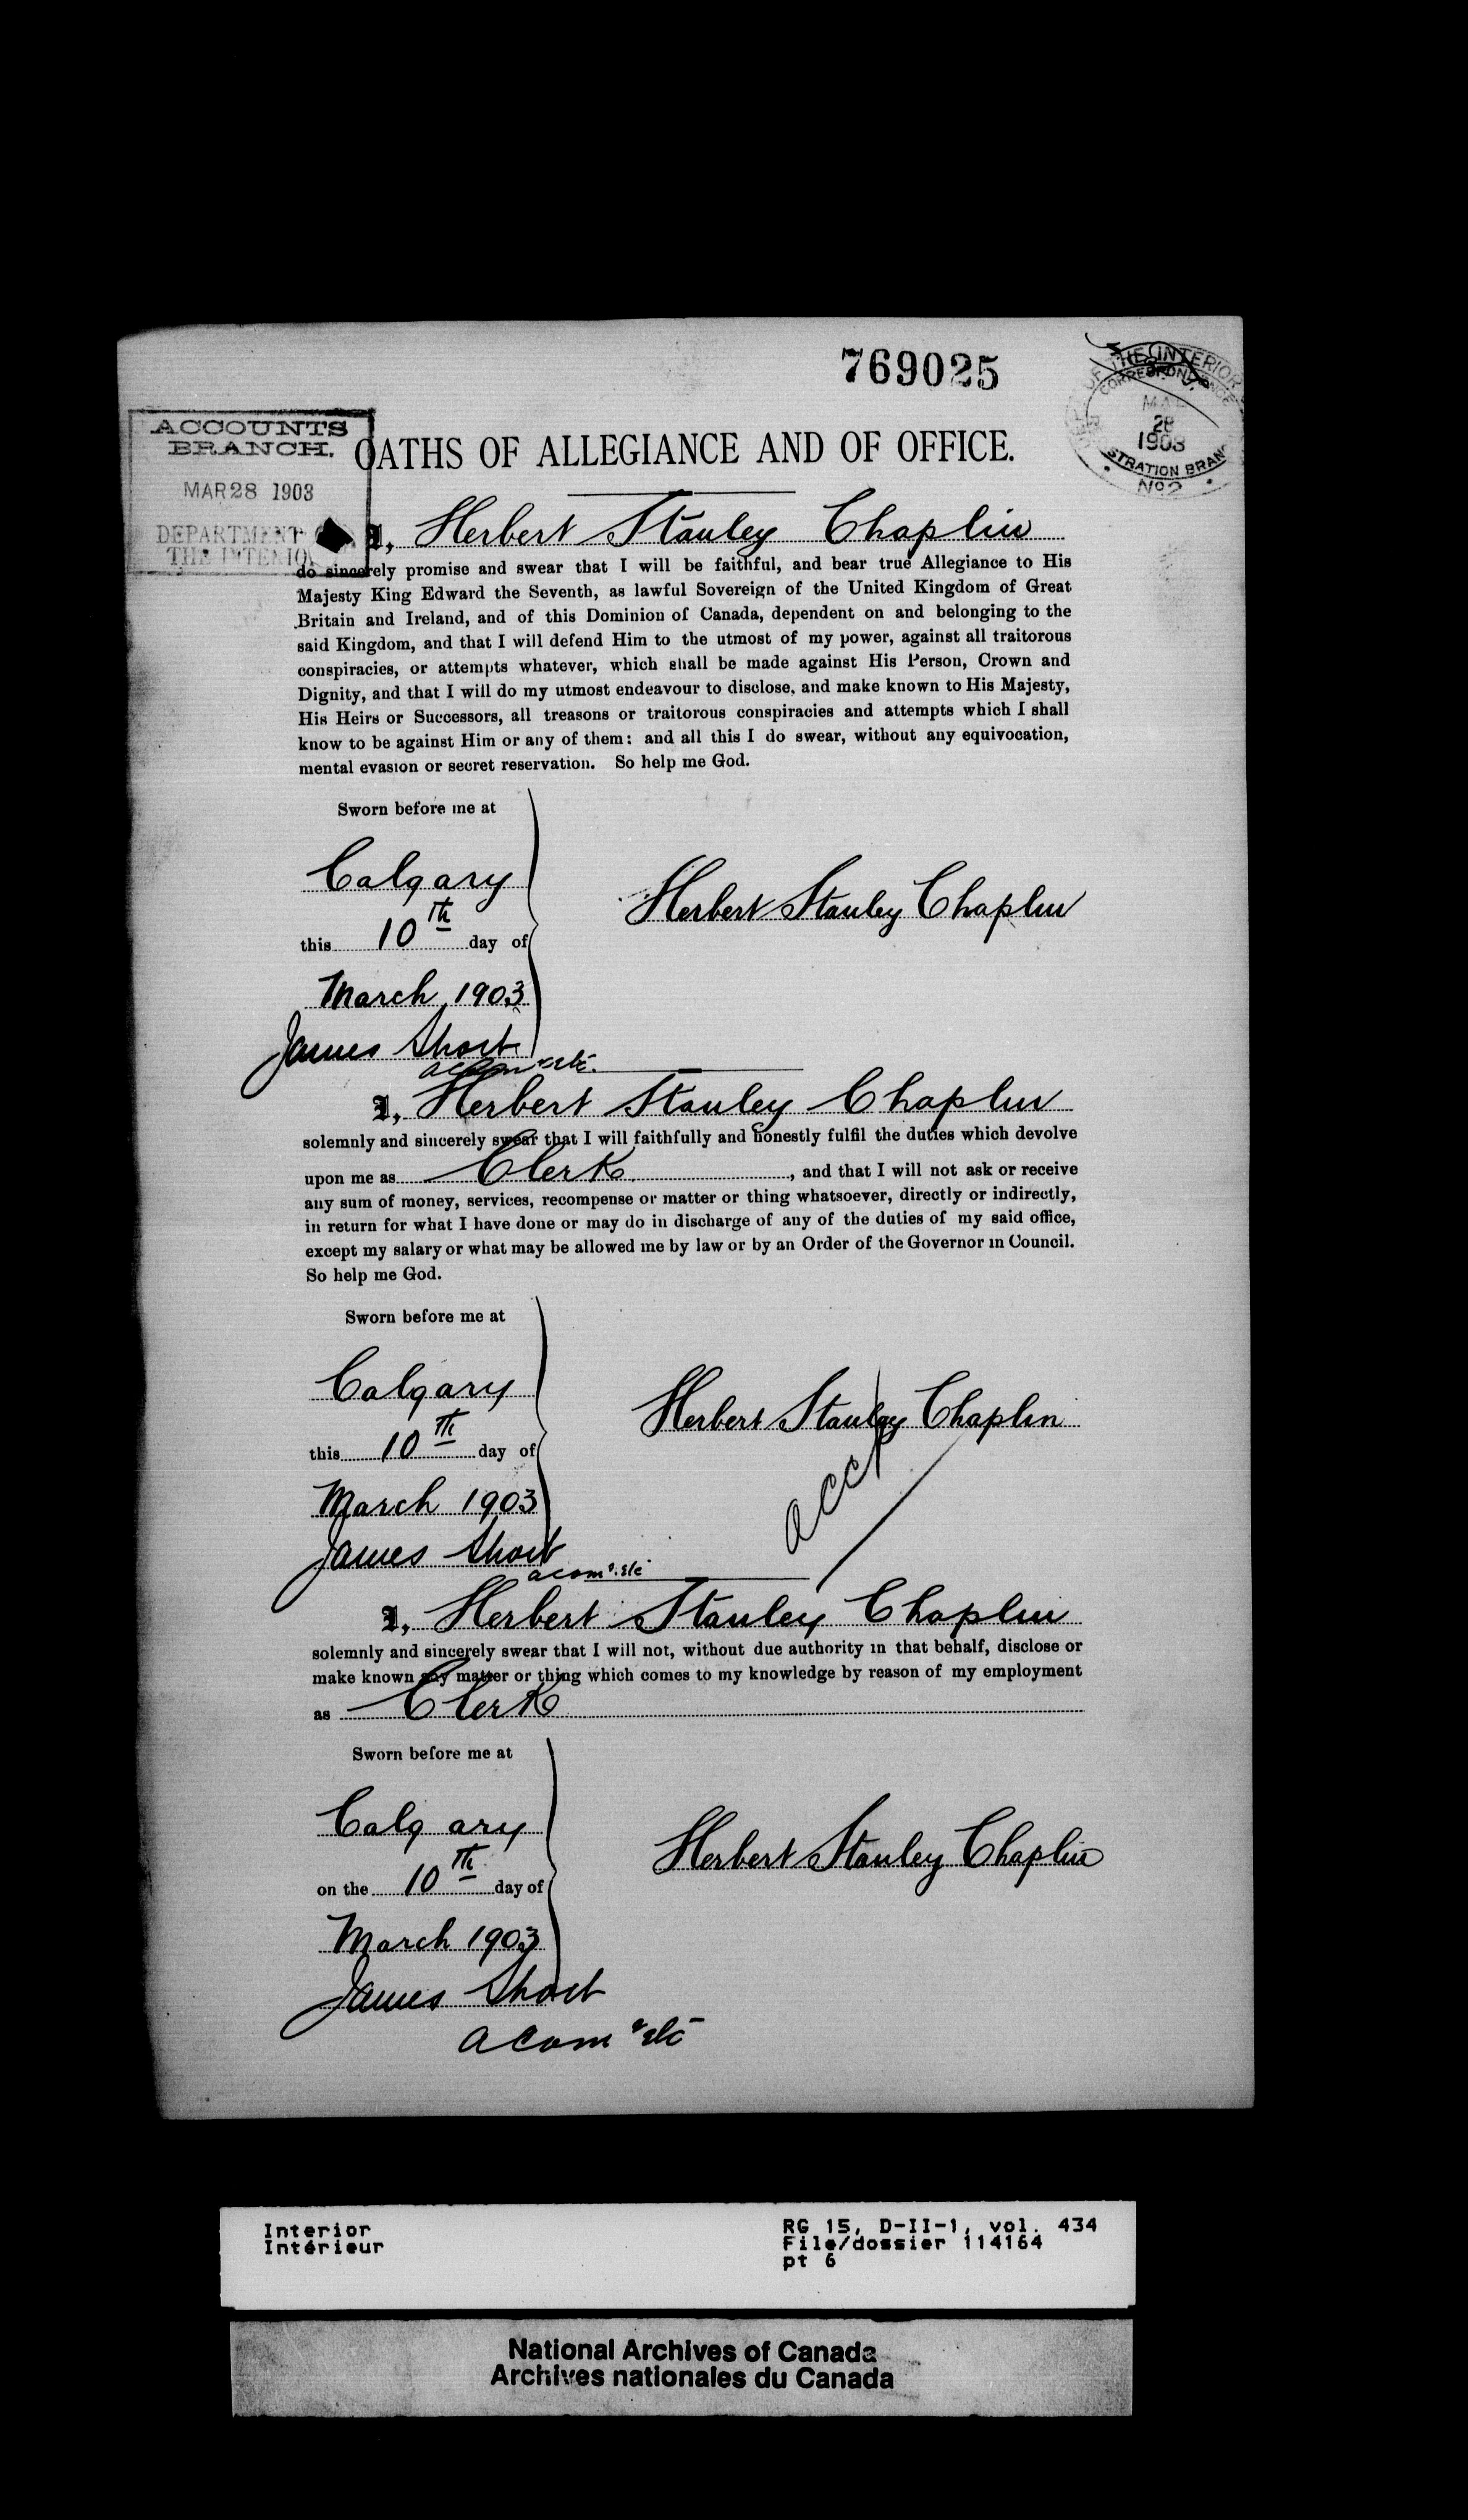 769025
DEPT OF THE INTERIOR
CORRESPONDENCE
MAR
28
1903
STRATION BRAN
No 2
ACCOUNTS
BRANCH.
MAR 28 1903
DEPARTMENT
THE INTERIOR
OATHS OF ALLEGIANCE AND OF OFFICE.
I, Herbert Stanley Chaplin
do sincerely promise and swear that I will be faithful, and bear true Allegiance to His
Majesty King Edward the Seventh, as lawful Sovereign of the United Kingdom of Great
Britain and Ireland, and of this Dominion of Canada, dependent on and belonging to the
said Kingdom, and that I will defend Him to the utmost of my power, against all traitorous
conspiracies, or attempts whatever, which shall be made against His Person, Crown and
Dignity, and that I will do my utmost endeavour to disclose, and make known to His Majesty,
His Heirs or Successors, all treasons or traitorous conspiracies and attempts which I shall
know to be against Him or any of them: and all this I do swear, without any equivocation,
mental evasion or secret reservation. So help me God.
Sworn before me at
Calgary
this 10th day of
March 1903
Herbert Stanley Chaplin
James Short
a com &etc
I, Herbert Stanley Chaplin
solemnly and sincerely swear that I will faithfully and honestly fulfil the duties which devolve
upon me as Clerk, and that I will not ask or receive
any sum of money, services, recompense or matter or thing whatsoever, directly or indirectly,
in return for what I have done or may do in discharge of any of the duties of my said office,
except my salary or what may be allowed me by law or by an Order of the Governor in Council.
So help me God.
Sworn before me at
Calgary
this 10th day of
March 1903
Herbert Stanley Chaplin
James Short
a com &etc
I, Herbert Stanley Chaplin
solemnly and sincerely swear that I will not, without due authority in that behalf, disclose or
make known any matter or thing which comes to my knowledge by reason of my employment
as Clerk
Sworn before me at
Calgary
on the 10th day of
March 1903
Herbert Stanley Chaplin
James Short
a com &etc
Interior
Intérieur
RG 15, D-II-1, vol. 434
File/dossier 114164
pt 6
National Archives of Canada
Archives nationales du Canada